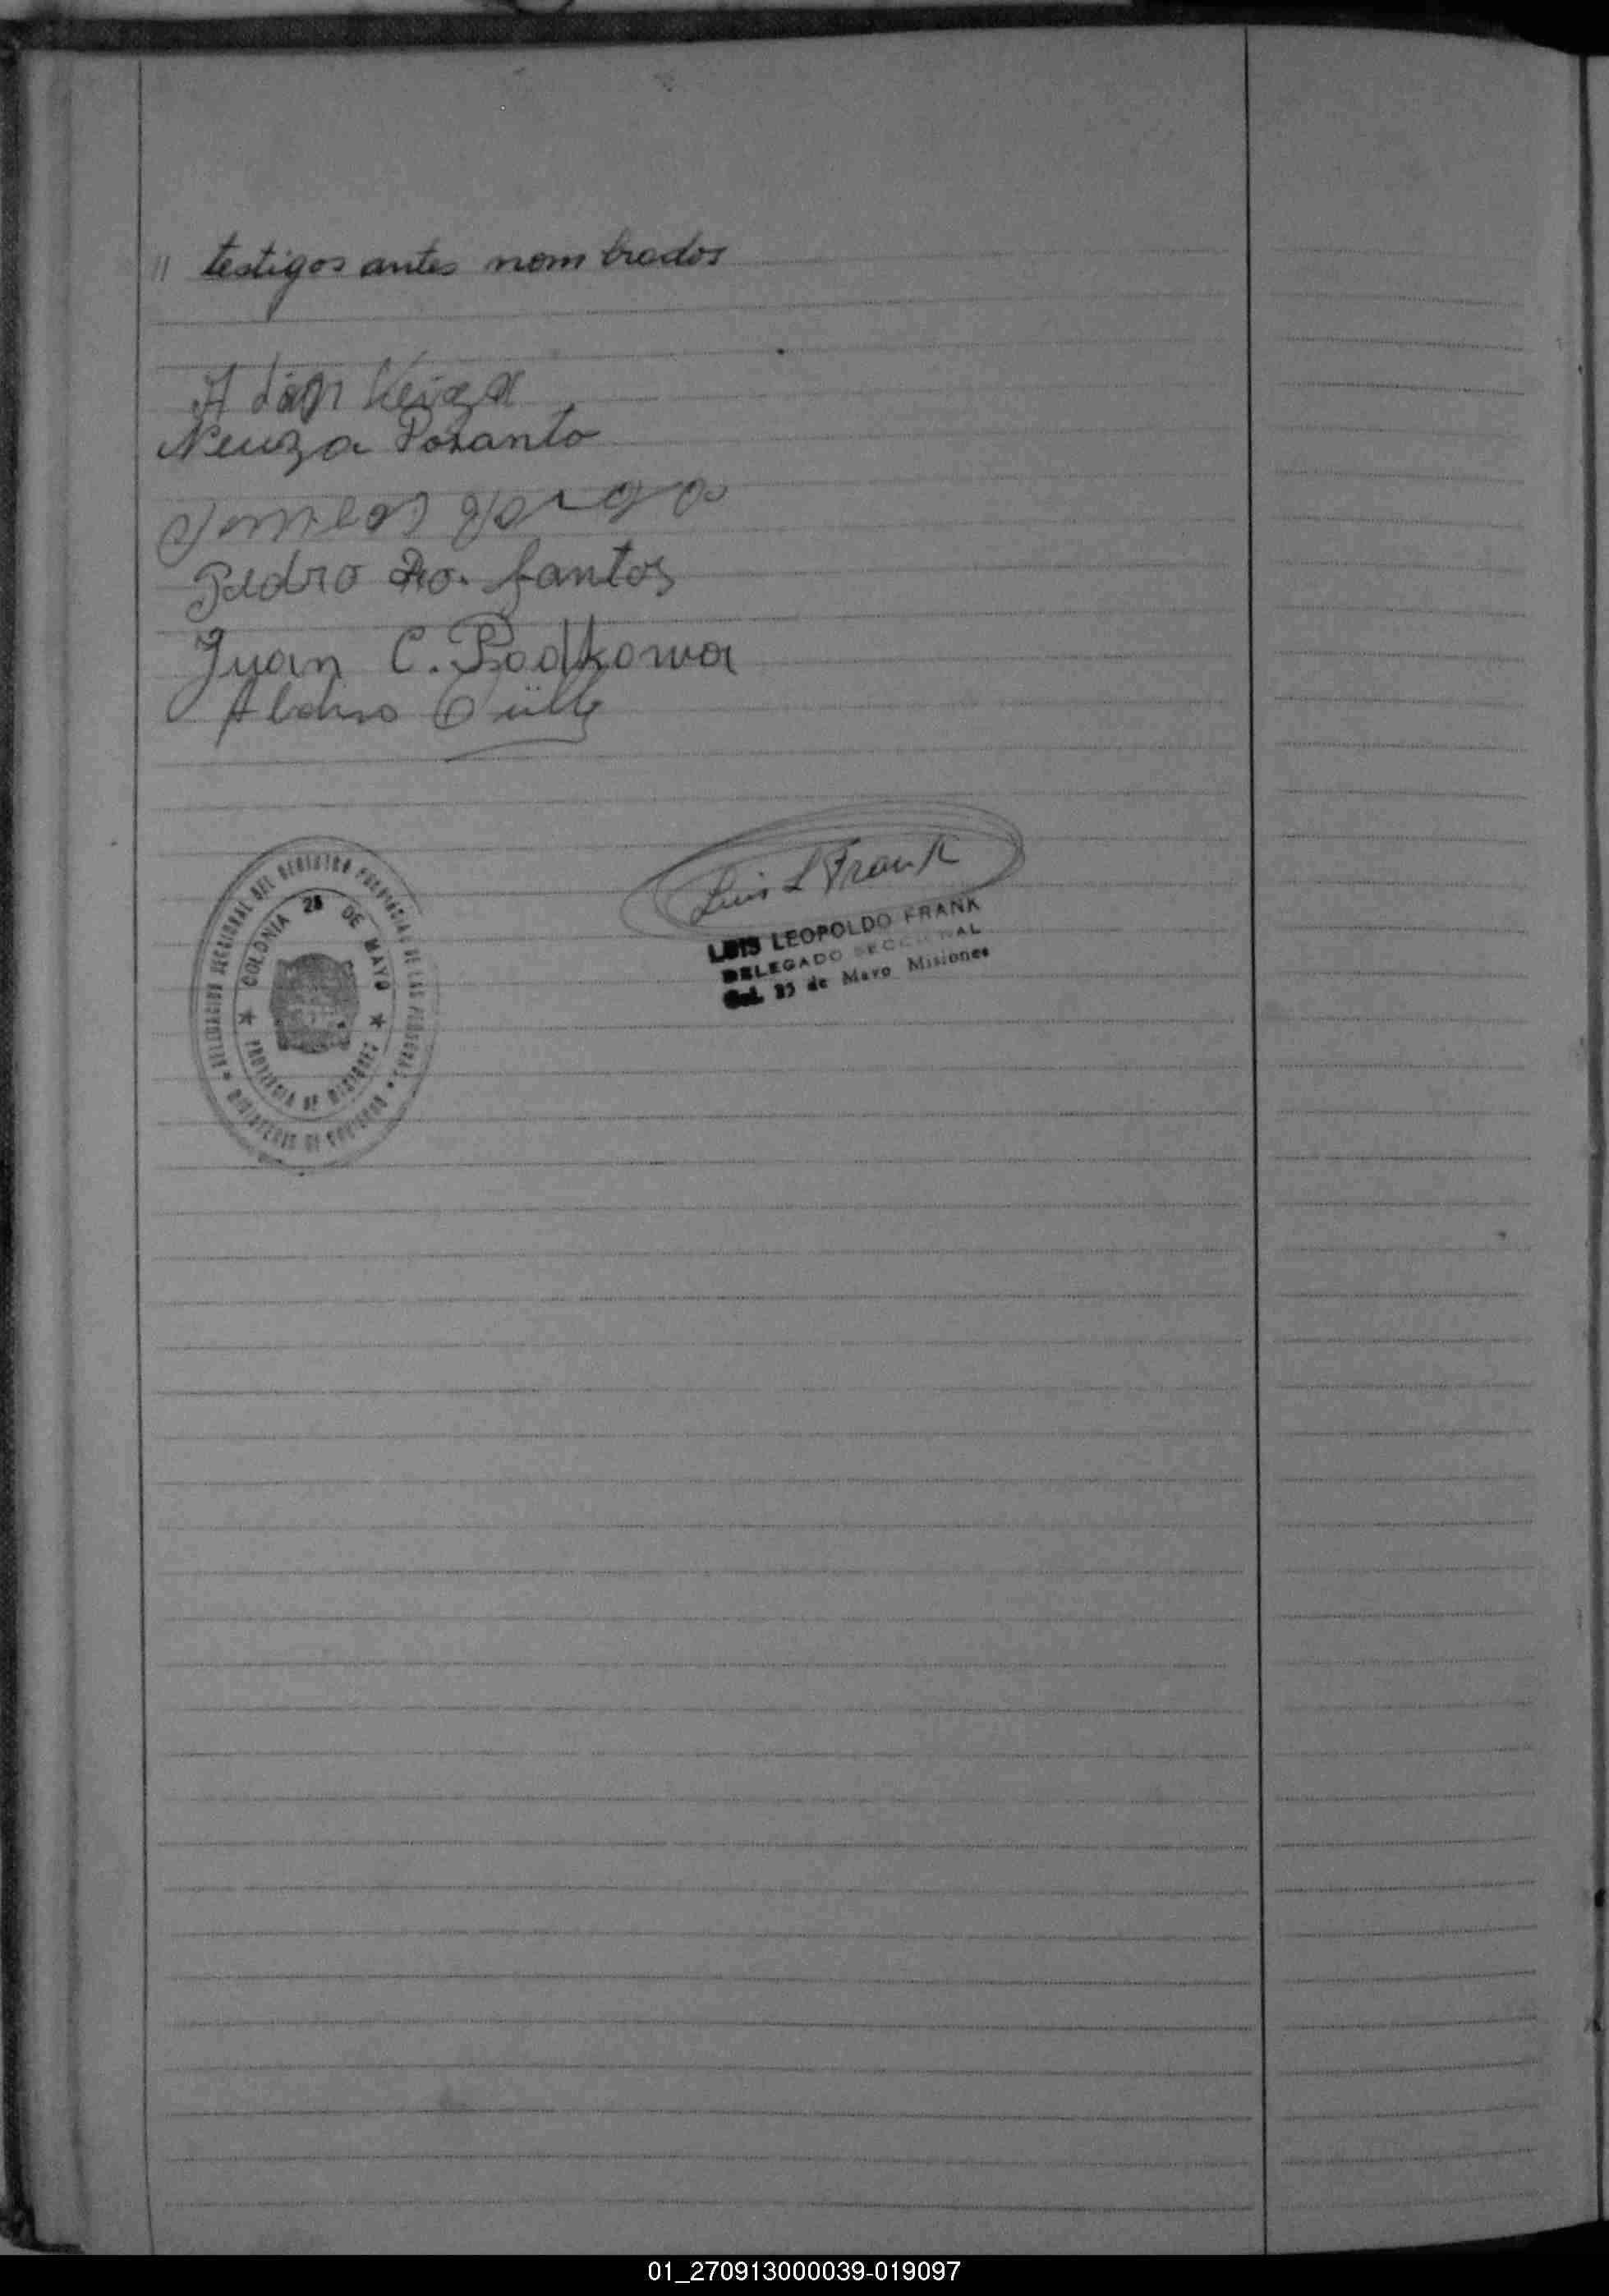 " testigos antes nombrados
Adan Veiga
Neuza Posanto
Pedro Ro. Santos
Juan C. Podkowa
Luis L Frank
LUIS LEOPOLDO FRANK
DELEGADO SECCIONAL
Col. 25 de Mayo Misiones
DELEGACION SECCIONAL DEL REGISTRO PROVINCIAL DE LAS PERSONAS
COLONIA 25 DE MAYO
PROVINCIA DE MISIONES
MINISTERIO DE GOBIERNO
01_270913000039-019097